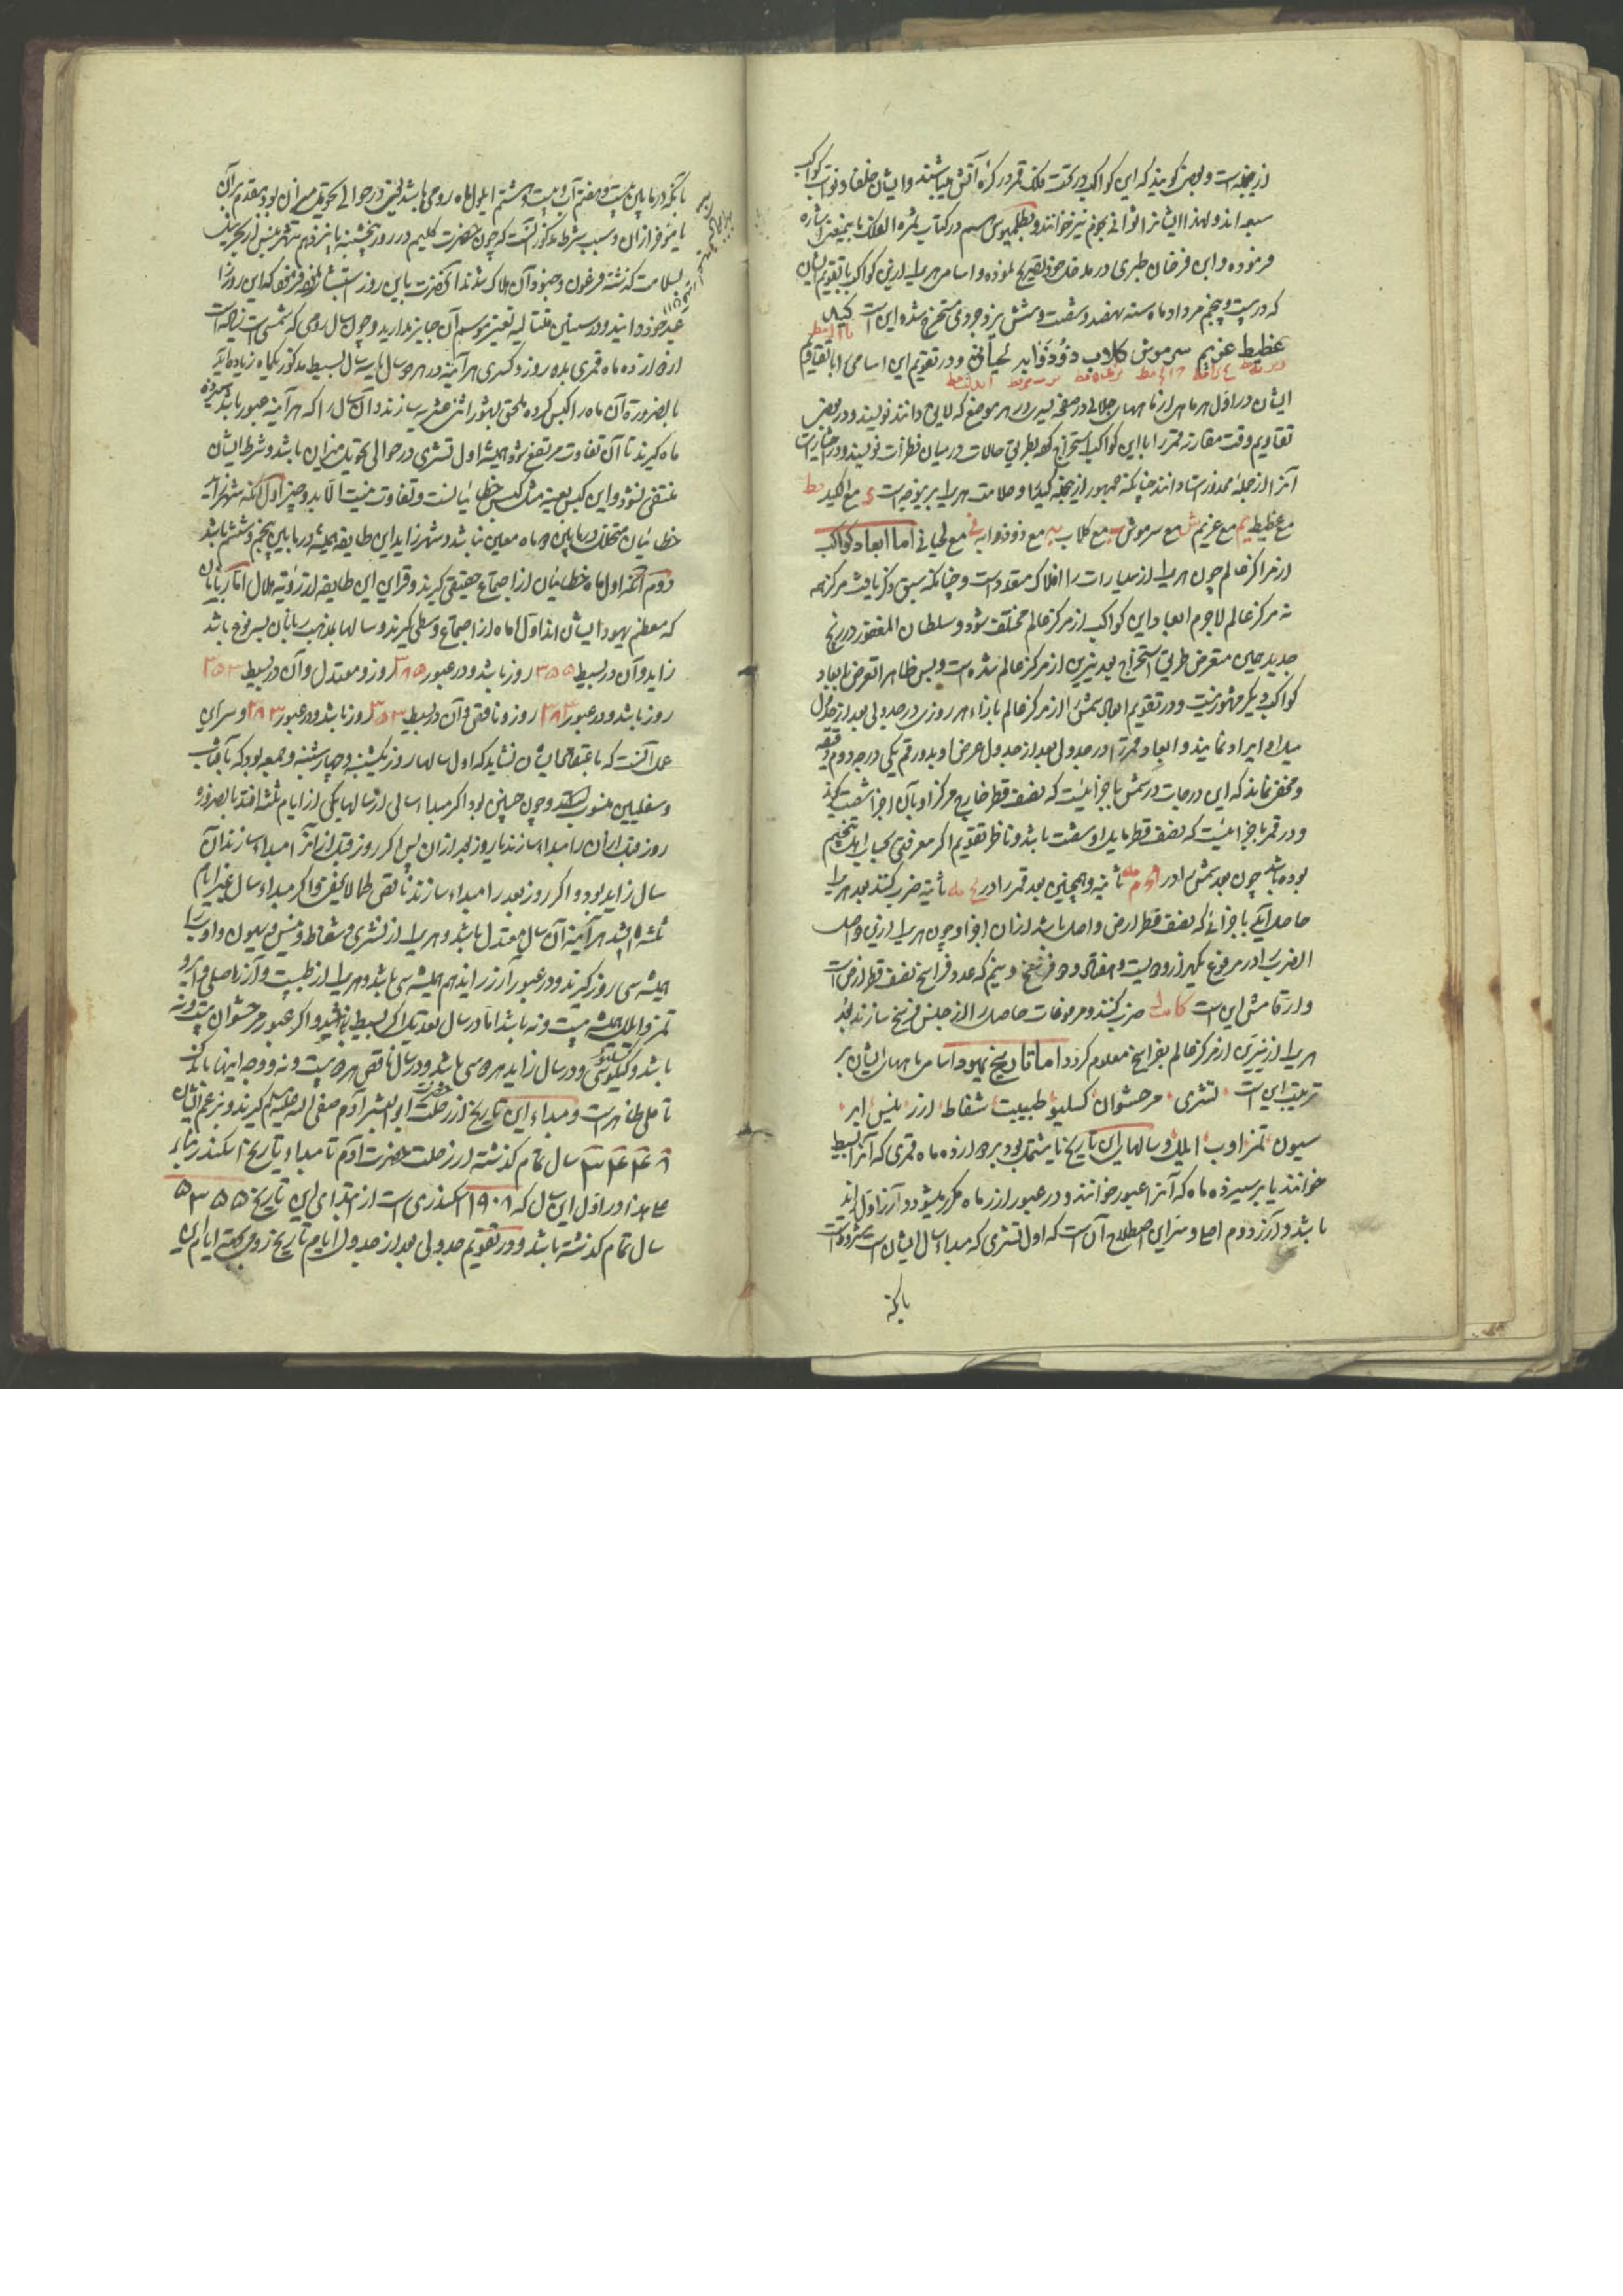 ازینجمله است و بعضی گویند که این کواکب در تحت فلک قمر در کره آتش میباشند و ایشان خلفا و نواب کواکب
سبعه اند و لهذا ایشانرا ثوانی نجوم نیز خوانند و بطلمیوس هم در کتاب ثمره الفلک باینمعنی اشاره
فرموده و ابن فرخان طبری در مدخل خود تصریح نموده و اسامی هر یک ازین کواکب با تقویم ایشان
که در بیست و پنجم مرداد ماه سنه نهصد و شصت و شش یزدجردی مستخرج شده این است کید
غطیط عزیم سرموش کلاب ذو ذوابه لحیانی و در تقویم این اسامی را با تقاویم
ایشان در اول هر ماهی از ماههای جلالی در صفحه یسری در هر موضع که لایق دانند نویسند و در بعضی
تقاویم وقت مقارنه قمر را با این کواکب استخراج کرده بطریق حالات در میان نظرات نویسند و در اختیارات
آنرا از جمله محذورات دانند چنانکه جمهور ازینجمله کید را و علامت هر یک برینوجه است مع الکید
مع غطیط مع عزیم مع سرموش مع کلاب مع ذو ذوابه مع لحیانی اما ابعاد کواکب
از مراکز عالم چون هر یک از سیارات را افلاک متعدد است و چنانکه سبق ذکر یافت مرکز همه
نه مرکز عالم لاجرم ابعاد این کواکب از مرکز عالم مختلف شود و سلطان المغفور در زیج
جدید همین متعرض طریق استخراج بعد نیرین از مرکز عالم شده است و بس ظاهرا تعرض بابعاد
کواکب دیگر مشهور نیست و در تقویم ابعاد شمس را از مرکز عالم بازاء هر روزی در جدولی بعد از جدول
میل او ایراد نمایند و ابعاد قمر را در جدولی بعد از جدول عرض او بدو رقم یکی درجه دوم دقیقه
و مخفی نماند که این درجات در شمس باجزائیست که نصف قطر خارج مرکز او بآن اجزا شصت گیرند
و در قمر باجزائیست که نصف قطر مایل او شصت باشد و ناظر تقویم اگر معرفتی بحساب اهل تنجیم
بوده باشد چون بعد شمس را در ثانیه و همچنین بعد قمر را در ثانیه ضرب کند بعد هر یک
حاصل آید باجزائی که نصف قطر ارض واحد باشد از آن اجزا و چون هر یک ازین حواصل
الضرب را در مرفوع یکهزار و دویست و هفتاد و دو فرسخ و نیم که عدد فراسخ نصف قطر ارض است
و ارقامش این است ضرب کنند و مرفوعات حاصل را از جنس فرسخ سازند بعد
هر یک از نیرین از مرکز عالم بفراسخ معلوم گردد اما تاریخ یهود اسامی ماههای ایشان بر
ترتیب این است تشری مرحشوان کسلیو طبیث شفاط اذر نیسن ایر
سیون تمز اوب ایلل و سالهای این تاریخ یا مشتمل بود بر دوازده ماه قمری که آنرا بسیط
خوانند یا بر سیزده ماه که آنرا عبور خوانند و در عبور اذر ماه مکرر میشود و آذر اول زاید
باشد و آذر دوم اصل و سر این اصطلاح آن است که اول تشری که مبداء سال ایشان است مشروط است
بانکه
بانکه در مابین بیست و هفتم آب و بیست و هشتم ایلول ماه رومی باشد یعنی در حوالی تحویل میزان بود مقدم بر آن
یا مؤخر از آن و سبب شرط مذکور آنست که چون حضرت کلیم در روز پنجشنبه پانزدهم شهر نیسن از بحر نیل
بسلامت گذشته فرعون و جنود آن هلاک شدند آنحضرت باین روز استبشار نموده فرمود که این روز را
عید خود دانید و در سنین متتالیه تغییر موسم آن جایز مدارید و چون سال رومی که شمسی است زیاده است
از دوازده ماه قمری بده روز و کسری هر آینه در هر دو سال یا سه سال بسیط مذکور یکماه زیاده آید
بالضروره آن ماه را کبس کرده ملحق بشهور اثنی عشر سازند و آن سال را که هر آینه عبور باشد سیزده
ماه گیرند تا آن تفاوت مرتفع شود و همیشه اول تشری در حوالی تحویل میزان باشد و شرط ایشان
منتفی نشود و این کبس بعینه مثل کبس خطائیانست و تفاوت نیست الا بدو چیز اول آنکه شهر زاید
خطائیان مختلف در مابین دو ماه معین نباشد و شهر زاید این طایفه همیشه در مابین پنجم و ششم باشد
دوم آنکه اول ماه خطائیان از اجتماع حقیقی گیرند و قراین این طایفه از رؤیه هلال اما ربانان
که معظم یهود ایشان اند اول ماه از اجتماع وسطی گیرند و سالها بمذهب ربانان بسه نوع باشد
زاید و آن در بسیط ۳۵۵ روز باشد و در عبور ۳۸۵ روز و معتدل و آن در بسیط ۳۵۴
روز باشد و در عبور ۳۸۴ روز و ناقص و آن در بسیط ۳۵۳ روز باشد و در عبور ۳۸۳ و سر این
عمل آنست که باعتقاد ایشان نشاید که اول سالها روز یکشنبه و چهارشنبه و جمعه بود که بآفتاب
و سفلیین منسوبند و چون چنین بود اگر مبداء سالی از سالها یکی از ایام ثلثه افتد بالضروره
روز قبل از آن را مبداء سازند یا روز بعد از آن پس اگر روز قبل از آنرا مبداء سازند آن
سال زاید بود و اگر روز بعد را مبداء سازند ناقص کما لا یخفی و اگر مبداء سال غیر ایام
ثلثه باشد هر آینه آن سال معتدل باشد و هر یک از تشری و شفاط و نیسن و سیون و اوب را
همیشه سی روز گیرند و در عبور آذر زاید هم همیشه سی باشد و هر یک از طبیث و آذر اصلی و ایر و
تمز و ایلل همیشه بیست و نه باشد اما در سال معتدل اگر بسیط باشد و اگر عبور مرحشوان بیست و نه
باشد و کسلیو سی و در سال زاید هر دو سی باشد و در سال ناقص هر دو بیست و نه و وجه اینها باندک
تاملی ظاهر است و مبداء این تاریخ از رحلت حضرت ابوالبشر آدم صفی الله علیه السلام گیرند و بزعم ایشان
۳۴۴۸ سال تمام گذشته از رحلت حضرت آدم تا مبداء تاریخ اسکندر بناء
علی هذا در اول این سال که ۱۹۰۸ اسکندری است از ابتدای این تاریخ ۵۳۵۵
سال تمام گذشته باشد و در تقویم جدولی بعد از جدول ایام تاریخ رومی بجهته ایام این